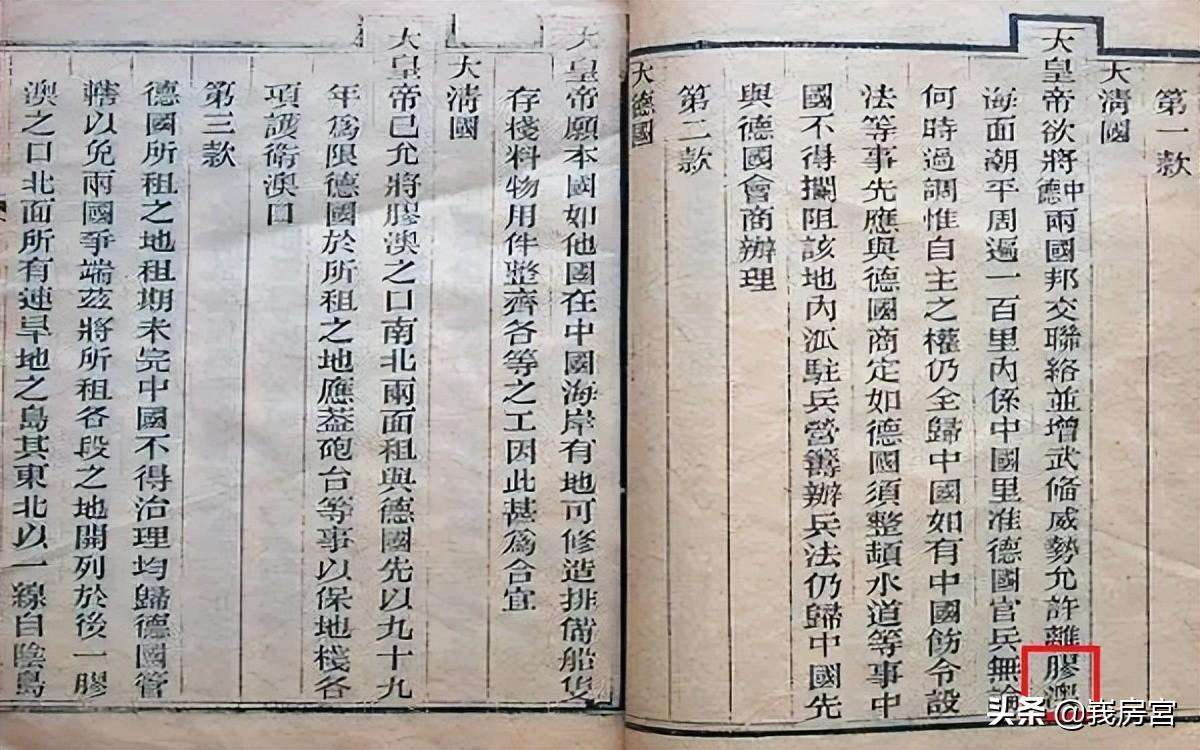 第一款
大清國
大皇帝欲將中德兩國邦交聯絡並增武偹威勢允許離膠澳
海面潮平周遍一百里內係中國里准德國官兵無論
何時過調惟自主之權仍全歸中國如有中國飭令設
法等事先應與德國商定如德國須整頓水道等事中
國不得攔阻該地內派駐兵營籌辦兵法仍歸中國先
與德國會商辦理
第二款
大德國
大皇帝願本國如他國在中國海岸有地可修造排偹船隻
存棧料物用件整齊各等之工因此甚為合宜
大清國
大皇帝已允將膠澳之口南北兩面租與德國先以九十九
年為限德國於所租之地應蓋砲台等事以保地棧各
項護衛澳口
第三款
德國所租之地租期未完中國不得治理均歸德國管
轄以免兩國爭端茲將所租各段之地開列於後一膠
澳之口北面所有連旱地之島其東北以一線自陰島
头条 @我房宫